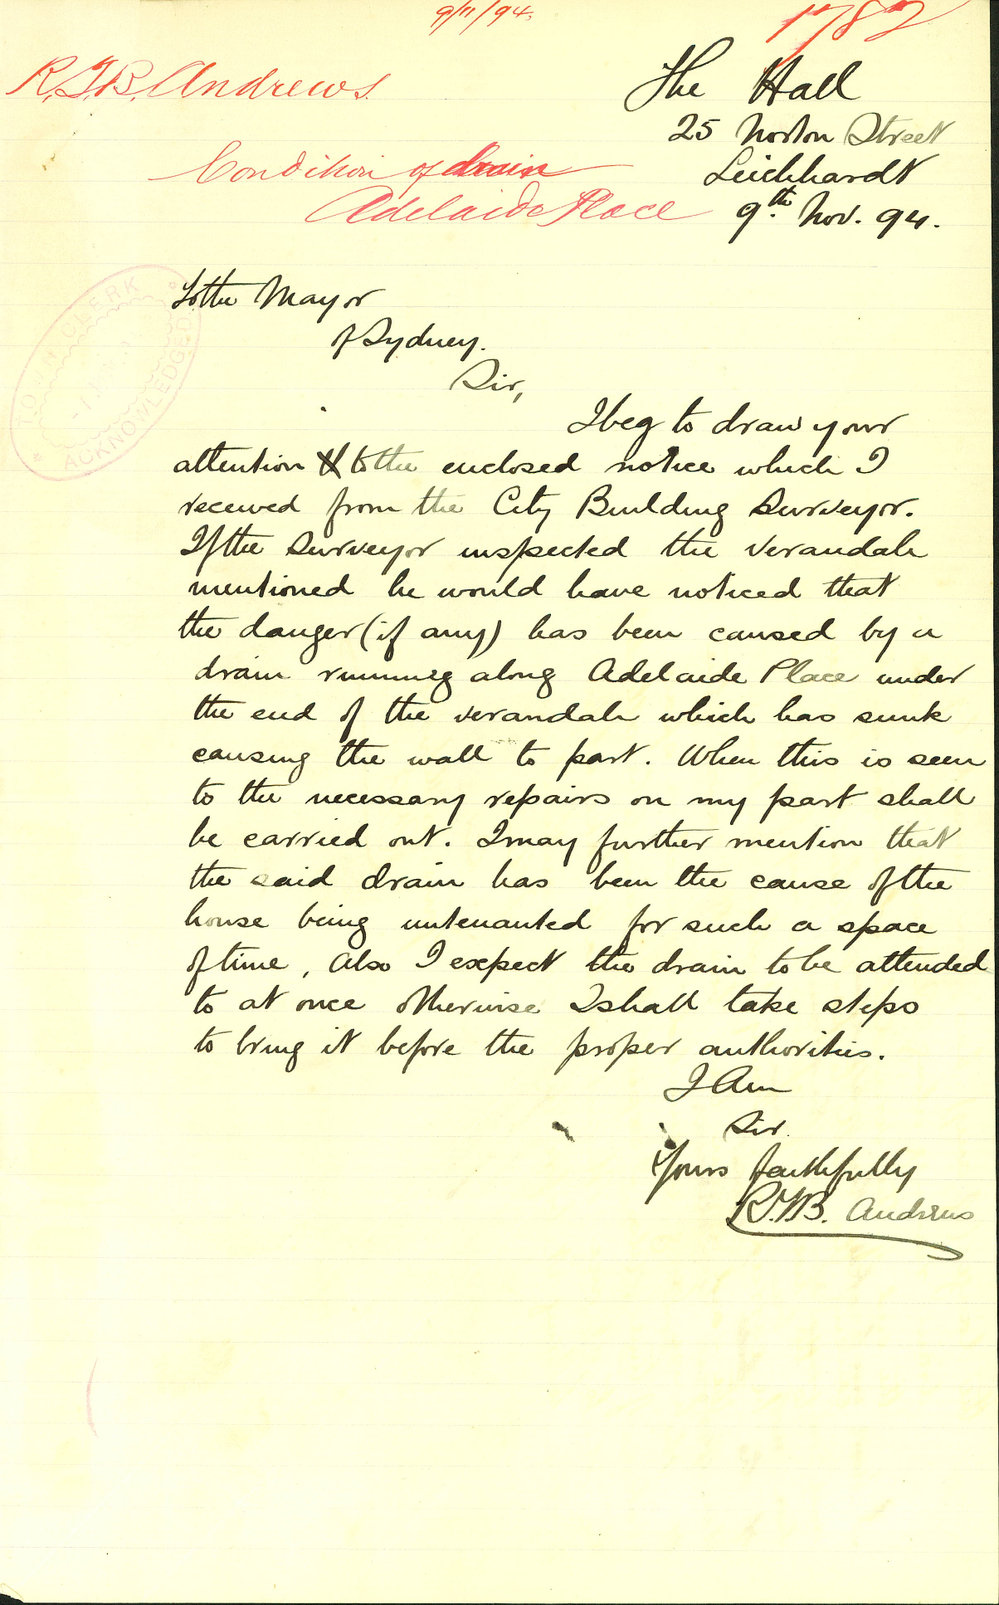 9/11/94.
1782
R.J.B. Andrews
The Hall
25 Norton Street
Condition of drain
Leichhardt
Adelaide Place
9th Nov. 94.
TOWN CLERK
ACKNOWLEDGED
To the Mayor
of Sydney.
Sir,
I beg to draw your
attention to the enclosed notice which I
received from the City Building Surveyor.
If the Surveyor inspected the verandah
mentioned he would have noticed that
the danger (if any) has been caused by a
drain running along Adelaide Place under
the end of the verandah which has sunk
causing the wall to part. When this is seen
to the necessary repairs on my part shall
be carried out. I may further mention that
the said drain has been the cause of the
house being untenanted for such a space
of time, Also I expect the drain to be attended
to at once otherwise I shall take steps
to bring it before the proper authorities.
I Am
Sir.
Yours faithfully
Andrews